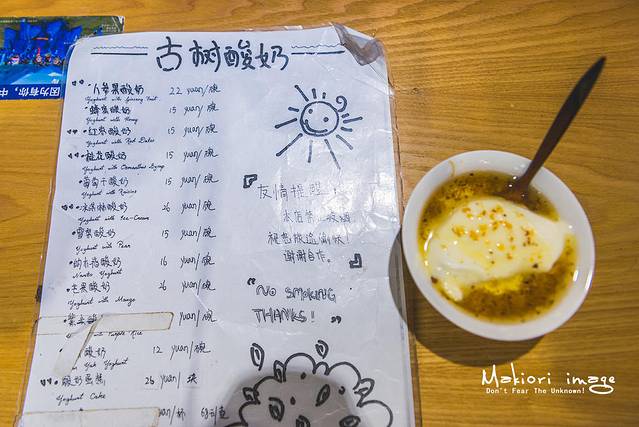 因为有你,中
古树酸奶
人参果酸奶 22 yuan/碗
Yoghurt with Ginseng Fruit
蜂蜜酸奶 15 yuan/碗
Yoghurt with Honey
红枣酸奶 15 yuan/碗
Yoghurt with Red Dates
桂花酸奶 15 yuan/碗
Yoghurt with Osmanthus Syrup
葡萄干酸奶 15 yuan/碗
Yoghurt with Raisins
冰淇淋酸奶 26 yuan/碗
Yoghurt with Ice-Cream
雪梨酸奶 15 yuan/碗
Yoghurt with Pear
酸奶 16 yuan/碗
Yoghurt
芒果酸奶 26 yuan/碗
Yoghurt with Mango
yuan/碗
Purple Rice
酸奶 12 yuan/碗
Yak Yoghurt
酸奶蛋糕 26 yuan/块
Yoghurt Cake
68元/
『友情提醒:
本店禁
谢谢合作。』
"No SMOKING
THANKS! "
Makiori image
Don't Fear The Unknown!